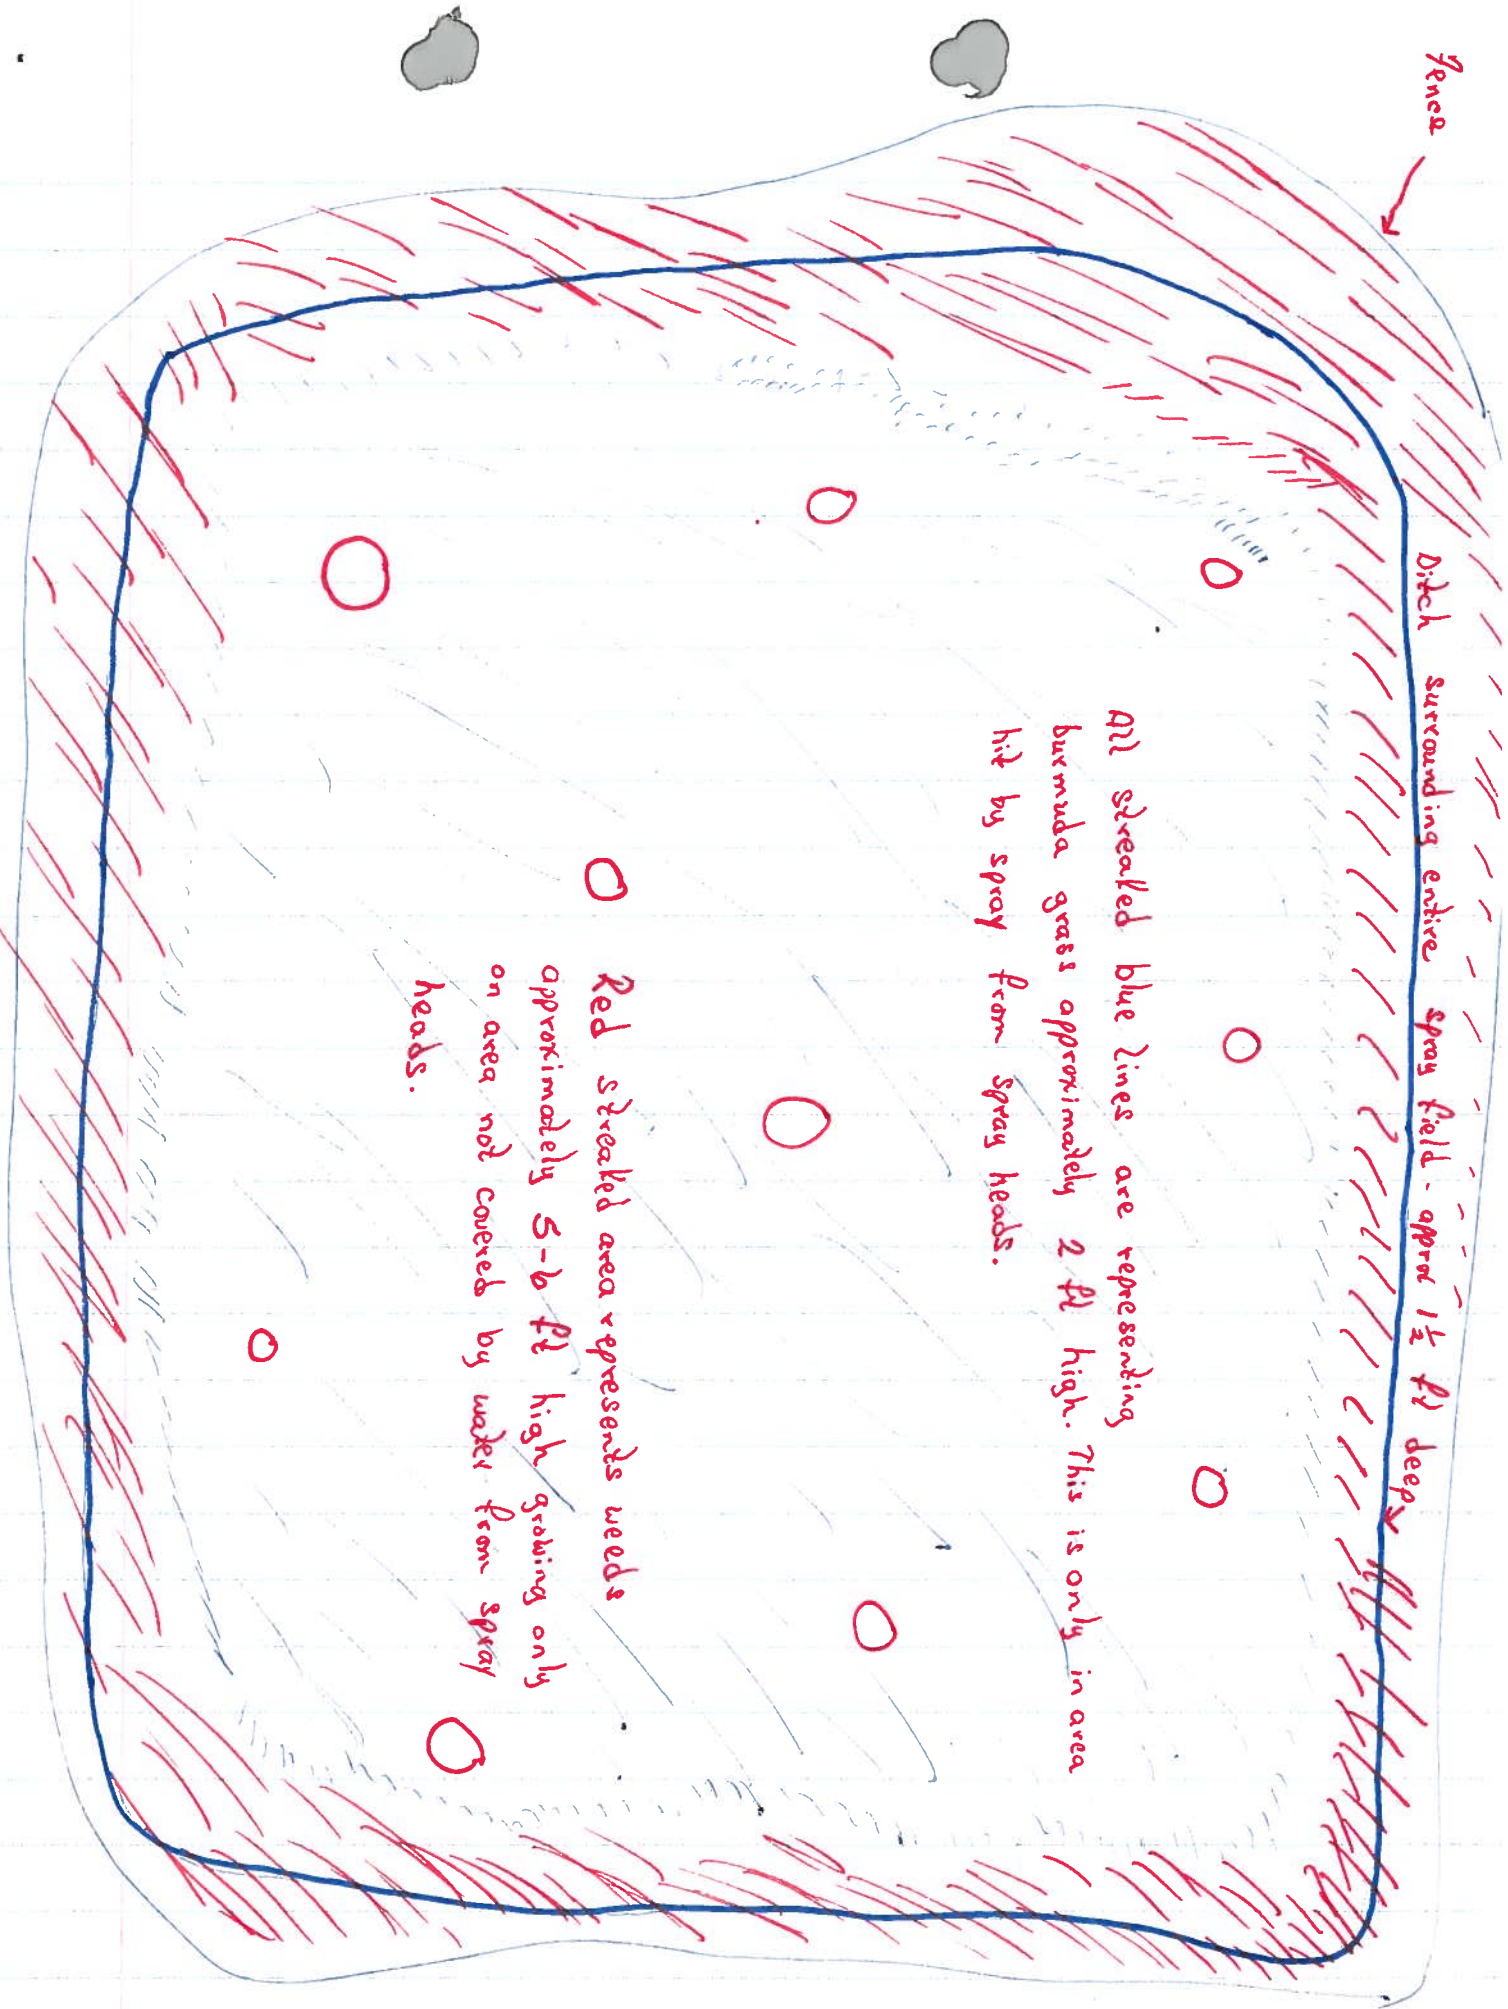 Fence
Ditch surrounding entire spray field - approx 1 1/2 ft deep
All streaked blue lines are representing
burmuda grass approximately 2 ft high. This is only in area
hit by spray from spray heads.
Red streaked area represents weeds
approximately 5-6 ft high growing only
on area not covered by water from spray
heads.